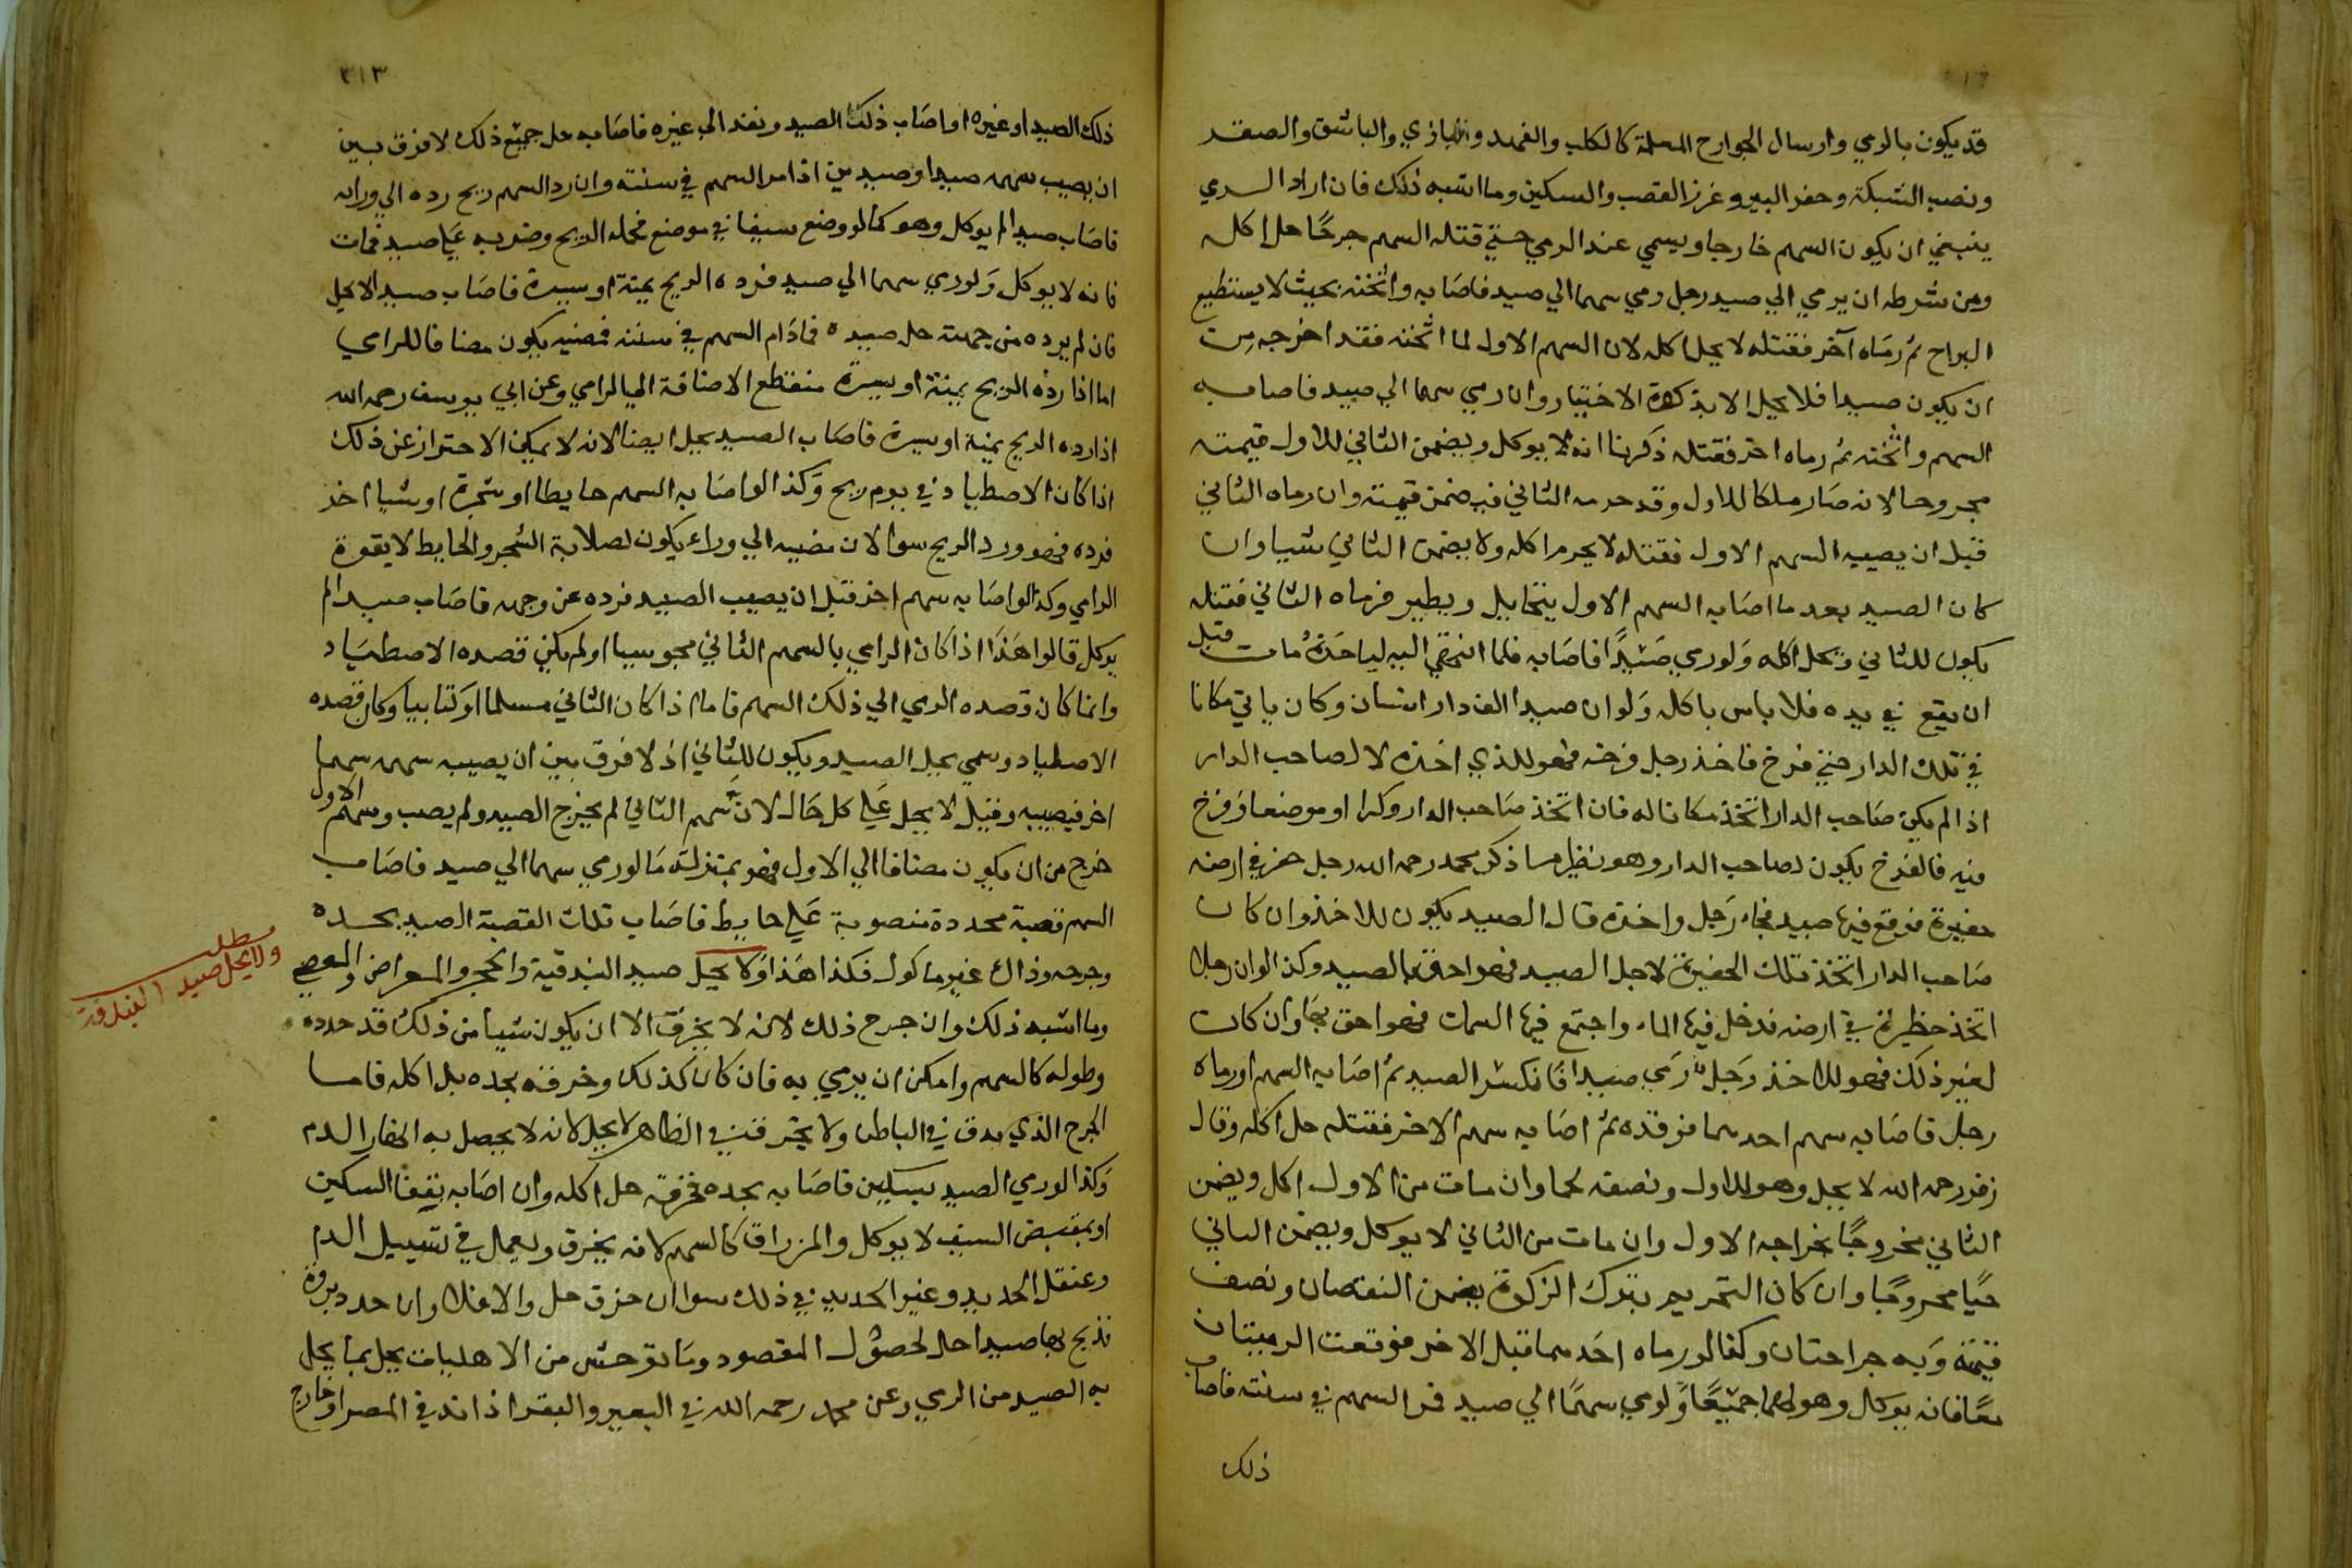 قد يكون بالرمي وارسال الجوارح المعلمة كالكلب والفهد والبازي والباشق والصقر
ونصب الشبكة وحفر البير وغرز القصب والسكين وما اشبه ذلك فان اراد الرمي
ينبغي ان يكون السهم خارجا ويسمي عند الرمي حتي قتله السهم جرحًا حل اكله
ومن شرطه ان يرمي الي صيد رجل رمي سهما الي صيد فاصابه واثخنه بحيث لا يستطيع
البراح ثم رماه آخر فقتله لا يحل اكله لان السهم الاول لما اثخنه فقد اخرجه من
ان يكون صيدا فلا يحل الا بذكوة الاختيار وان رمي سهما الي صيد فاصابه
السهم واثخنه ثم رماه اخر فقتله ذكرنا انه لا يوكل ويضمن الثاني للاول قيمته
مجروحا لانه صار ملكا للاول وقد حرمه الثاني فيضمن قيمته وان رماه الثاني
قبل ان يصيبه السهم الاول فقتله لا يحرم اكله ولا يضمن الثاني شيا وان
كان الصيد بعد ما اصابه السهم الاول يتحايل ويطير فرماه الثاني فقتله
يكون للثاني ويحل اكله ولو رمي صيدًا فاصابه فلما انتهي اليه لياخذه مات قبل
ان يقع في يده فلا باس باكله ولو ان صيدا الف دار انسان وكان ياتي مكانا
في تلك الدار حتي فرخ فاخذ رجل فرخه فهو للذي اخذه لا لصاحب الدار
اذا لم يكن صاحب الدار اتخذ مكانا له فان اتخذ صاحب الدار وكرا او موضعا وفرخ
فيه فالفرخ يكون لصاحب الدار وهو نظير ما ذكر محمد رحمه الله رجل حفر في ارضه
حفيرة فوقع فيها صيد فجاء رجل واخذه قال الصيد يكون للاخذ وان كان
صاحب الدار اتخذ تلك الحفيرة لاجل الصيد فهو احق بالصيد وكذا لو ان رجلا
اتخذ حظيرة في ارضه فدخل فيها الماء واجتمع فيها السمك فهو احق بها وان كان
لغير ذلك فهو للاخذ رجل رمي صيدا فانكسر الصيد ثم اصابه السهم او رماه
رجل فاصابه سهم احدهما فوقده ثم اصابه سهم الاخر فقتله حل اكله وقال
زفر رحمه الله لا يحل وهو للاول ونصفه لحما وان مات من الاول اكل ويضمن
الثاني مجروحًا بجراجه الاول وان مات من الثاني لا يوكل ويضمن الثاني
حيًا مجروحًا وان كان التحريم بترك الزكوة يضمن النقصان ونصف
قيمة وبه جراحتان وكذا لو رماه احدهما قبل الاخر فوقعت الرميتان
معًا فانه يوكل وهو لهما جميعًا ولو رمي سهمًا الي صيد فمر السهم في سننه فاصاب
ذلك
٣١٣
ذلك الصيد او غيره او اصاب ذلك الصيد ونفذ الي غيره فاصابه حل جميع ذلك لا فرق بين
ان يصيب سهمه صيدا او صيدين اذا مر السهم في سننه وان رد السهم ريح رده الي ورائه
فاصاب صيدا لم يوكل وهو كما لو وضع سيفا في موضع فحمله الريح وضرب به علي صيد فمات
فانه لا يوكل ولو رمي سهما الي صيد فرده الريح يمنة او يسرة فاصاب صيدا لا يحل
فان لم يرده من جهته حل صيده فما دام السهم في سننه فمضيه يكون مضافا للرامي
اما اذا رده الريح يمنة او يسرة منقطع الاضافة الي الرامي وعن ابي يوسف رحمه الله
اذا رده الريح يمنة او يسرة فاصاب الصيد يحل ايضا لانه لا يمكن الاحتراز عن ذلك
اذا كان الاصطياد في يوم ريح وكذا لو اصابه السهم حايطا او شجرة او شيا اخذ
فرده فهو ورد الريح سوا لان مضيه الي وراء يكون لصلابة الشجر والحايط لا بقوة
الرامي وكذا لو اصابه سهم اخر قبل ان يصيب الصيد فرده عن وجهه فاصاب صيدا لم
يوكل قالوا هذا اذا كان الرامي بالسهم الثاني مجوسيا او لم يكن قصده الاصطياد
وانما كان قصده الرمي الي ذلك السهم فاما اذا كان الثاني مسلما او كتابيا وكان قصده
الاصطياد وسمي يحل الصيد ويكون للثاني اذ لا فرق بين ان يصيب سهمه سهما
اخر فيصيبه وقيل لا يحل علي كل حال لان سهم الثاني لم يخرج الصيد ولم يصب وسهم الاول
خرج من ان يكون مضافا الي الاول فهو بمنزلة ما لو رمي سهما الي صيد فاصاب
السهم قصبة محددة منصوبة علي حايط فاصاب تلك القصبة الصيد بحده
وجرحه وذلك غير ماكول فكذا هذا ولا يحل صيد البندقية والحجر والمعراض والعصي
وما اشبه ذلك وان جرح ذلك لانه لا يخرق الا ان يكون شيا من ذلك قد حدده
وطوله كالسهم وامكن ان يرمي به فان كان كذلك وخرقه بحده يحل اكله فاما
الجرح الذي يدق في الباطن ولا يخرق في الظاهر لا يحل لانه لا يحصل به انهار الدم
وكذا لو رمي الصيد بسكين فاصابه بحده فخرقه حل اكله وان اصابه بقفا السكين
او بمقبض السيف لا يوكل والمزراق كالسهم لانه يخرق ويعمل في تسييل الدم
ومثقل الحديد وغير الحديد في ذلك سوا ان خزق حل والا فلا وان حدد مروة
فذبح بها صيدا حل لحصول المقصود وما توحش من الاهليات يحل بما يحل
به الصيد من الرمي وعن محمد رحمه الله في البعير والبقر اذا ند في المصر او خارج
مطلب
ولا يحل صيد البندقة